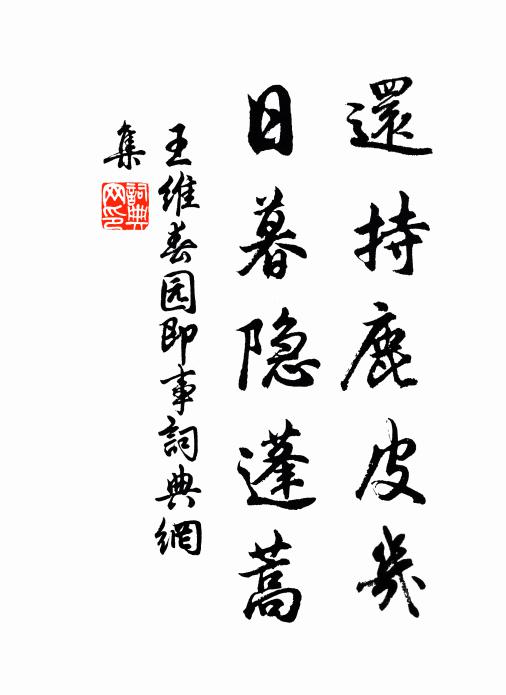 還持鹿皮幾
日暮隐蓬蒿
王維春园即事詞典網
集
詞典网印